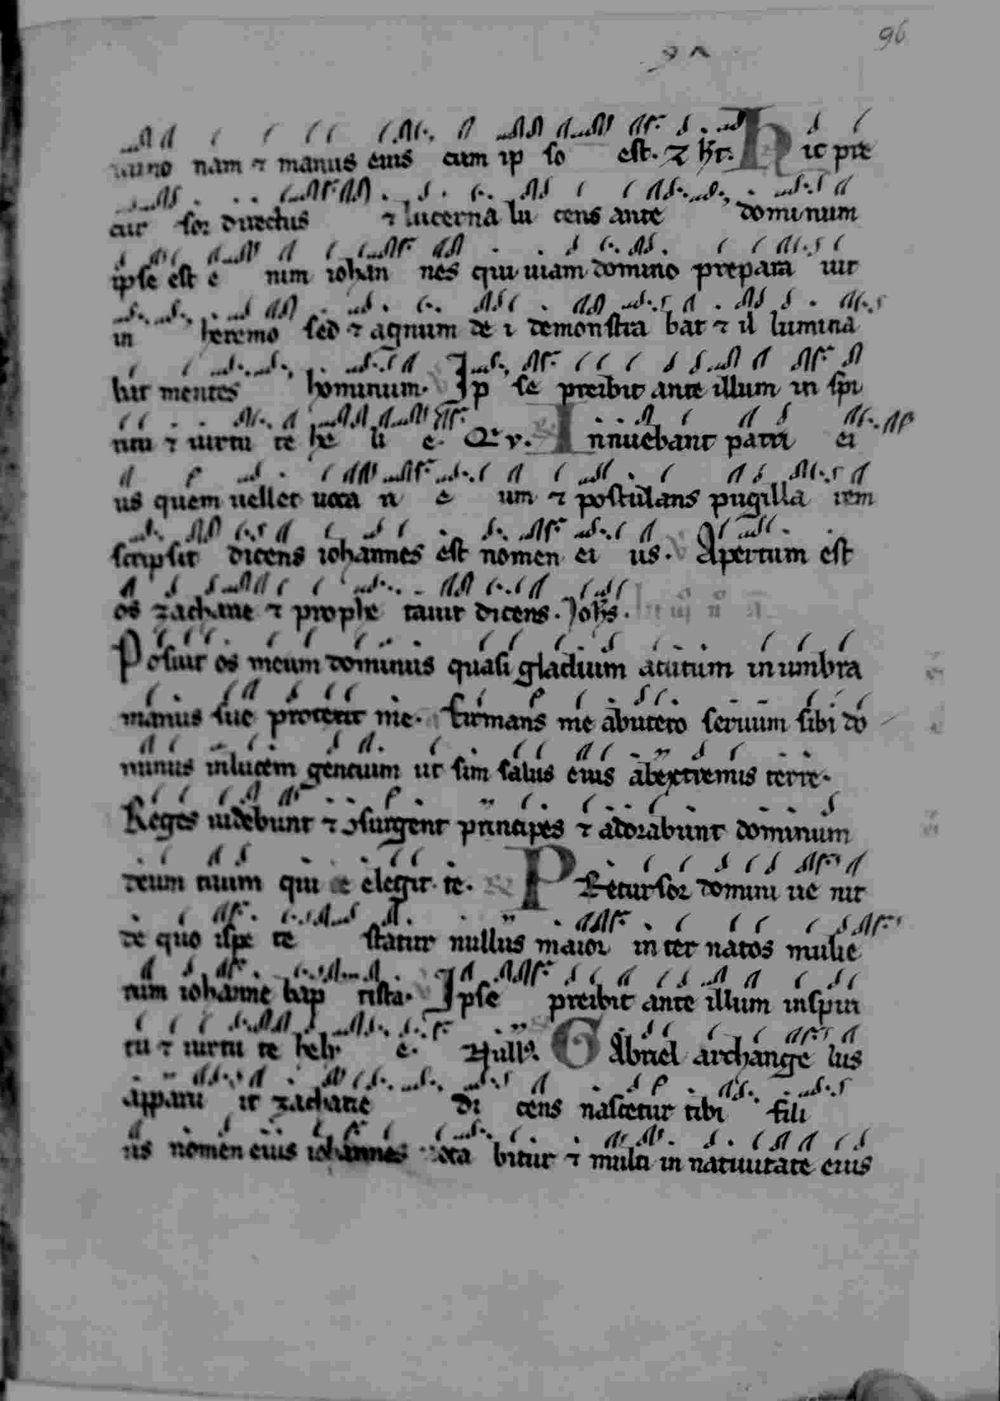 96
nam ⁊ manus eius cum ip so est. ⁊ hr. Hic pre
cur sor directus ⁊ lucerna lu cens ante dominum
ipse est e nim iohan nes qui uiam domino prepara uit
in heremo sed ⁊ agnum de i demonstra bat ⁊ il lumina
bit mentes hominum. Ip se preibit ante illum in spi
ritu ⁊ uirtu te he li e. Innuebant patri ei
us quem uellet uoca ri e um ⁊ postulans pugilla rem
scripsit dicens iohannes est nomen ei us. V Apertum est
os zacharie ⁊ prophe tauit dicens. Johs.
Posuit os meum dominus quasi gladium acutum in umbra
manus sue protexit me. firmans me abutero seruum sibi do
minus inlucem gentium ut sim salus eius abextremis terre.
Reges uidebunt ⁊ ɔsurgent principes ⁊ adorabunt dominum
deum tuum qui elegit te. Precursor domini ue nit
de quo ipse te statur nullus maior in ter natos mulie
rum iohanne bap tista. V Ipse preibit ante illum inspiri
tu ⁊ uirtu te hely e. Null9. Gabriel archange lus
apparu it zacharie di cens nascetur tibi fili
us nomen eius iohannes uoca bitur ⁊ multi in natiuitate eius